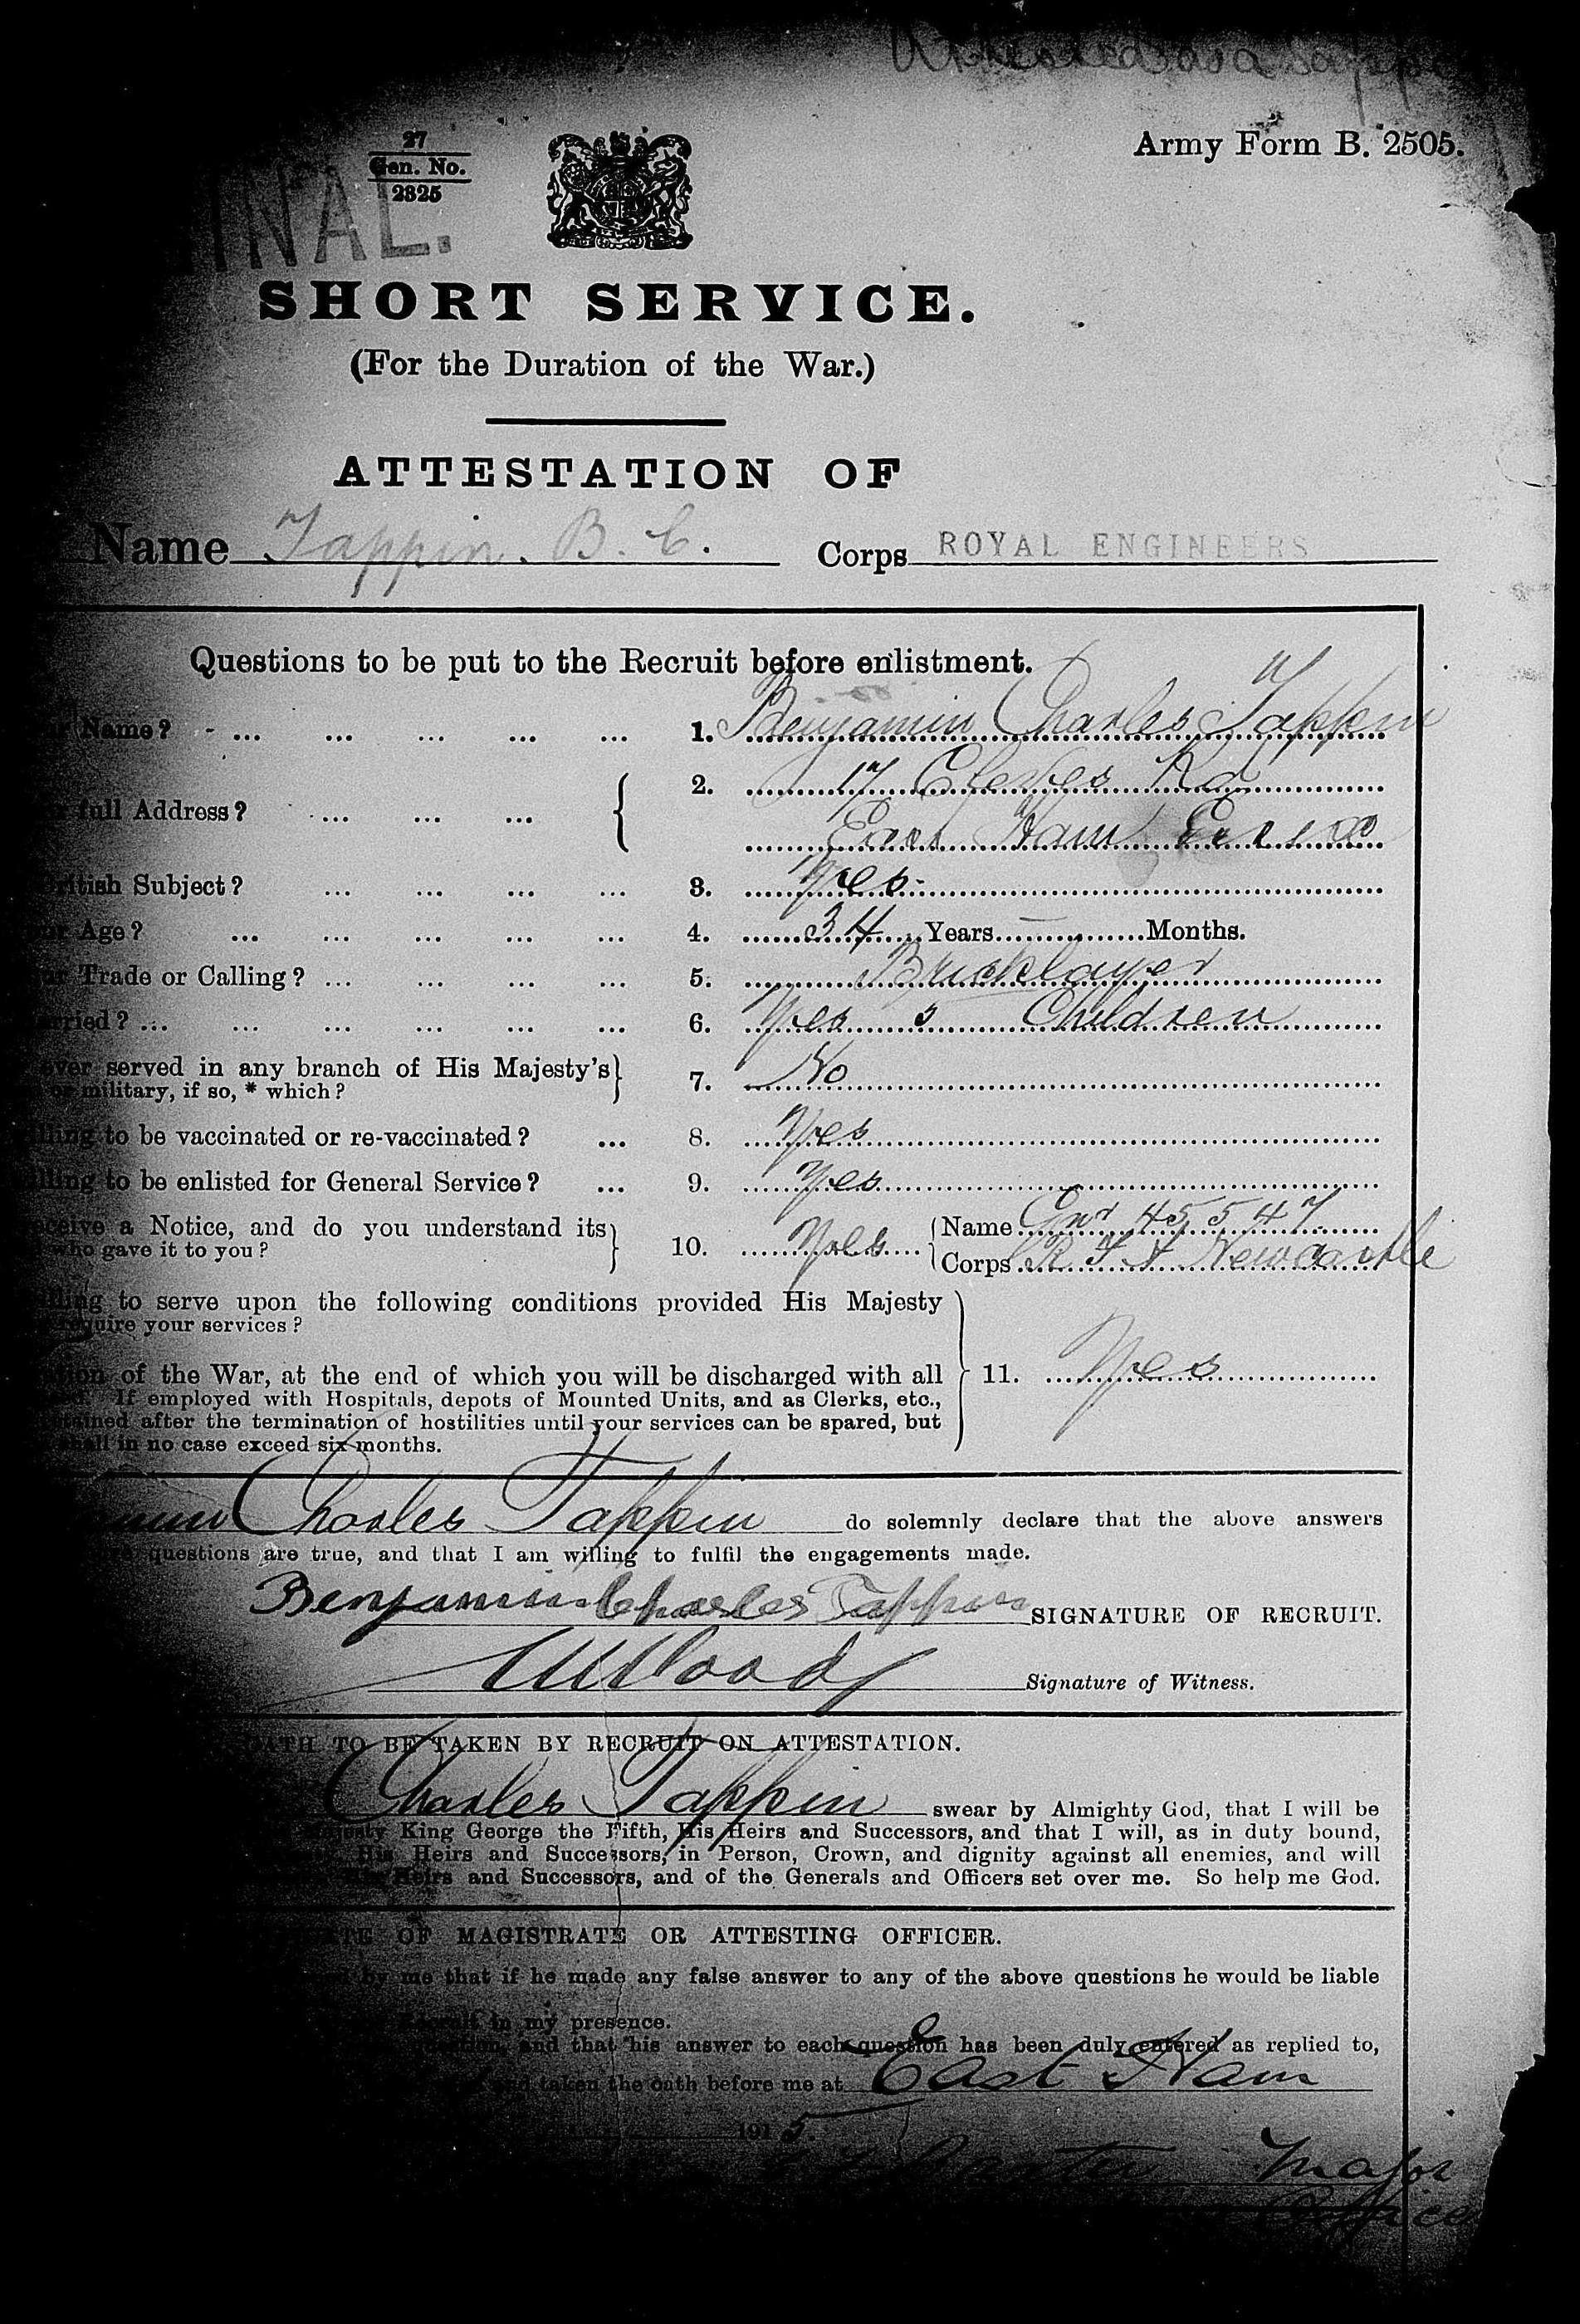 Attested as a Sapper
27
Gen. No.
2825
Army Form B. 2505.
INAL.
SHORT SERVICE.
(For the Duration of the War.)
ATTESTATION OF
Name Tappin. B. C. Corps ROYAL ENGINEERS
Questions to be put to the Recruit before enlistment.
Name? ... ... ... ... ... 1. Benjamin Charles Tappin
full Address? ... ... ... 2. 17 Rd
East Ham Essex
British Subject? ... ... ... ... 3. Yes
Age? ... ... ... ... ... 4. 34 Years — Months.
Trade or Calling? ... ... ... ... 5. Bricklayer
rried? ... ... ... ... ... ... 6. Yes 5 Children
ever served in any branch of His Majesty's 7. No
or military, if so, * which?
lling to be vaccinated or re-vaccinated? ... 8. Yes
lling to be enlisted for General Service? ... 9. Yes
receive a Notice, and do you understand its 10. Yes Name Gnr 45547
who gave it to you? Corps R F A Newcastle
lling to serve upon the following conditions provided His Majesty
require your services?
ation of the War, at the end of which you will be discharged with all 11. Yes
ed. If employed with Hospitals, depots of Mounted Units, and as Clerks, etc.,
retained after the termination of hostilities until your services can be spared, but
shall in no case exceed six months.
Charles Tappin do solemnly declare that the above answers
questions are true, and that I am willing to fulfil the engagements made.
Benjamin Charles Tappin SIGNATURE OF RECRUIT.
Signature of Witness.
OATH TO BE TAKEN BY RECRUIT ON ATTESTATION.
Charles Tappin swear by Almighty God, that I will be
Majesty King George the Fifth, His Heirs and Successors, and that I will, as in duty bound,
His Heirs and Successors, in Person, Crown, and dignity against all enemies, and will
Heirs and Successors, and of the Generals and Officers set over me. So help me God.
TE OF MAGISTRATE OR ATTESTING OFFICER.
by me that if he made any false answer to any of the above questions he would be liable
Recruit in my presence.
and that his answer to each question has been duly entered as replied to,
and taken the oath before me at East Ham
1915.
Major